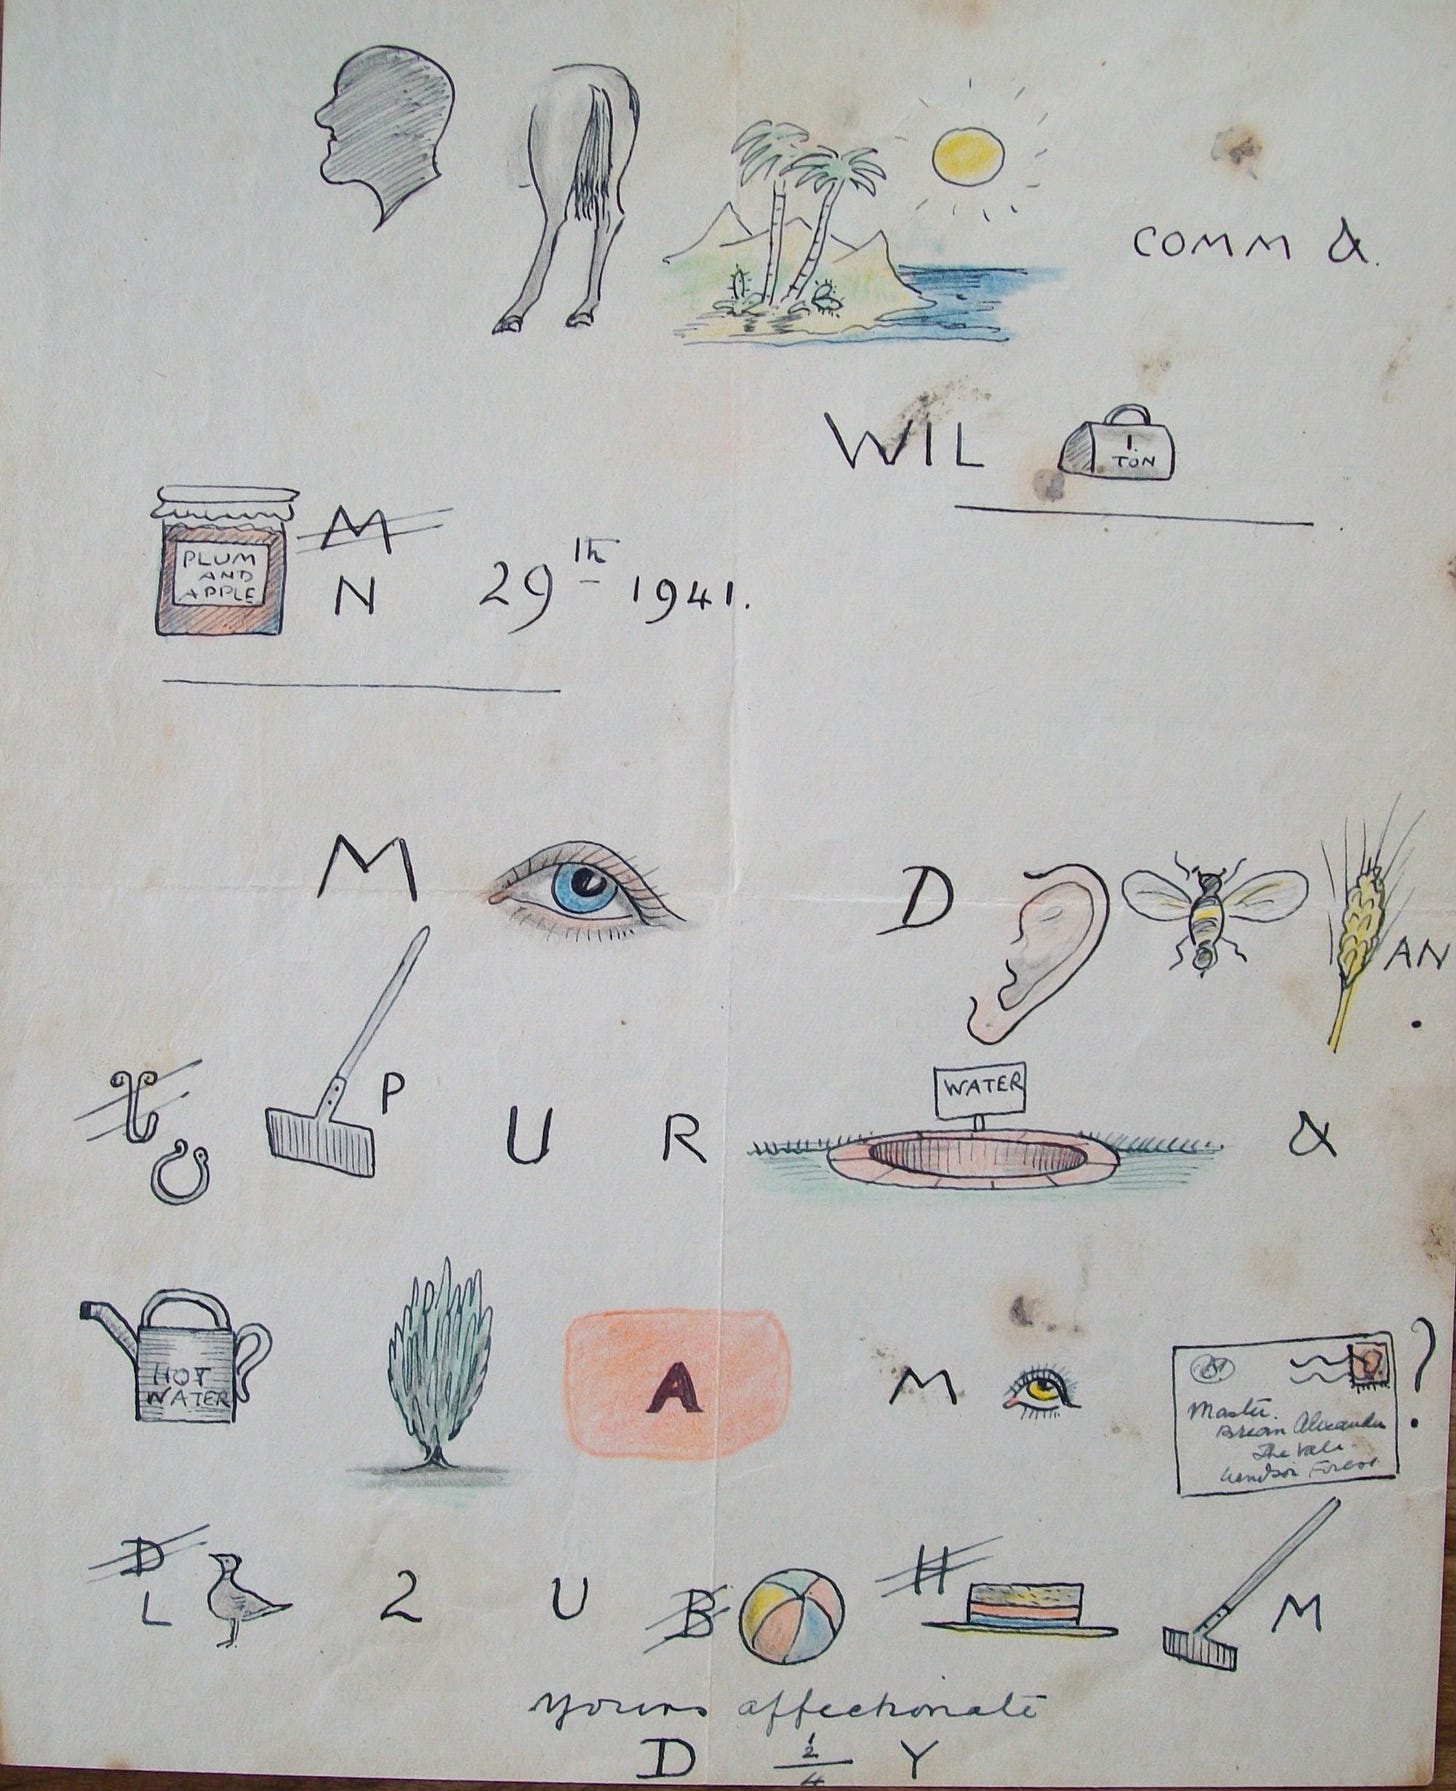 COMM &.
WIL 1. TON
PLUM
AND
APPLE
M
N 29th 1941.
M D AN.
P U R WATER &
HOT
WATER A M ?
Master.
Brian Alexander
The Vale
Windsor Forest
D
L 2 U B H M
yours affectionate
D ½/4 Y